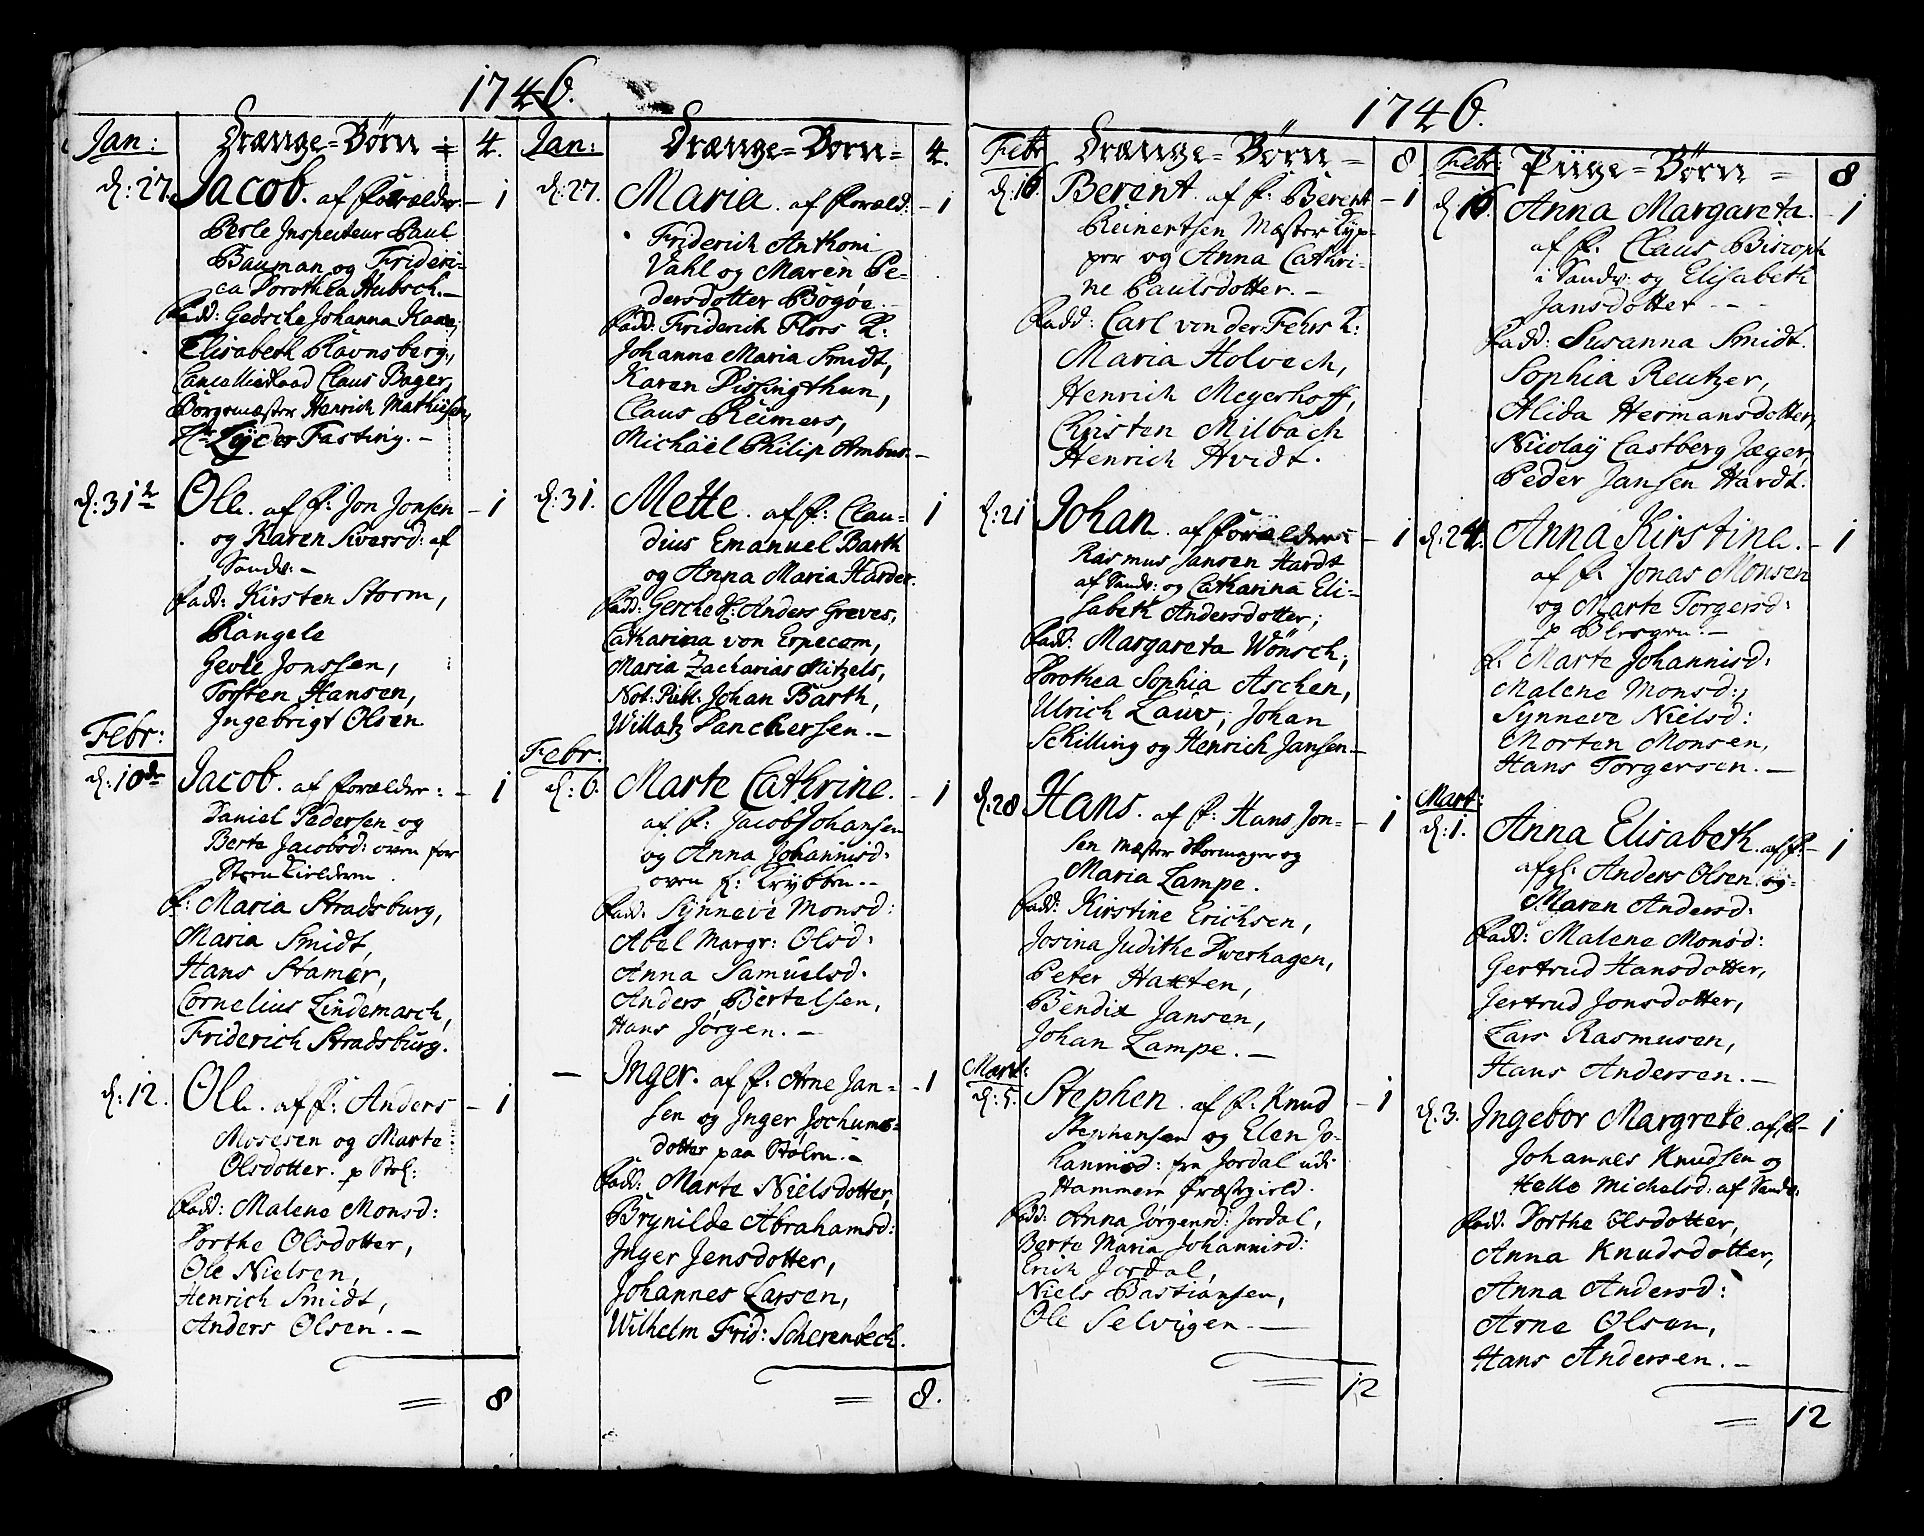 1746.
Jan: Drænge=Børn = 4.
d: 27. Jacob. af Forælder. – 1
Perle Inspecteur Paul
Bauman og Frideri-
ca Dorothea Hubsch. –
Fadd: Gedsche Johanna
Elisabeth Ravnsberg,
Cancellieraad Claus Bager,
Borgemæster Henrich Mathiesen,
Hr Lÿder Fasting. –
d: 31te Ole. af F: Jon Jonsen – 1
og Karen Sversd: af
Sandv: –
Fadd: Kirsten Storm,
Rangele
Jonssen,
Torsten Hansen,
Ingebrigt Olsen
Febr:
d: 10de Jacob. af Forælder: – 1
Daniel Pedersen og
Berte Jacobsd: oven for
F: Maria Stradsburg,
Maria Smidt,
Hans Stamer,
Cornelius Lindemarch,
Friderich Stradsburg.
d: 12. Ole. af F: Anders – 1
Mosesen og Marte
Olsdotter. p Støl:
Fadd: Malene Monsd:
Dorthe Olsdotter,
Ole Nielsen,
Henrich Smidt,
Anders Olsen. –
= 8
Jan: Drænge=Børn= 4.
d: 27. Maria. af Foræld: – 1
Friderich Anthoni
Vahl og Maren Pe-
dersdotter Bøgøe. –
Fadd: Friderich Flors K:
Johanna Maria Smidt,
Karen Pissingthun,
Claus Reimers,
Michaël Philip Ambus. –
d: 31. Mette. af F: Clau- 1
dius Emanuel Barth
og Anna Maria Harder.
Fadd: Gesche K: Anders Greves,
Catharina von Erpecom,
Maria Zacharias Mitzels,
Not: Publ: Johan Barth,
Willatz Danckersen. –
Febr:
d: 6. Marte Cathrine. – 1
af F: Jacob Johansen
og Anna Johannisd:
oven f: Krÿbben. –
Fadd. Sÿnneve Monsd:
Abel Margr: Olsd:
Anna Samuelsd.
Anders Bertelsen,
Hans Jørgen. –
– Inger. af F: Arne Jan- – 1
sen og Inger Jochums-
dotter paa Stølen. –
Fadd: Marte Nielsdotter,
Brÿnilde Abrahamsd:
Inger Jensdotter,
Johannes Larsen,
Wilhelm Frid: Scherenbech.
= 8.
1746.
Febr Drænge=Børn = 8.
d: 16. Berent. af F: Berent – 1
Reinertsen Mæster Kyp-
per og Anna Cathri-
ne Paulsdotter. –
Fadd: Carl von der Fehrs K:
Maria Holvech,
Henrich Meyerhoff,
Christen Milbach
Henrich Hvidt.
d: 21 Johan. af Forælder: – 1
Rasmus Jansen Hardt
af Sandv: og Catharina Eli-
sabeth Andersdotter;
Fadd: Margareta Wönsch,
Dorothea Sophia Aschen,
Ulrich Lauv, Johan
Schilling og Henrich Jansen –
d: 28 Hans. af F: Hans Jon- – 1
sen Mæster Skomager og
Maria Lampe.
Fadd: Kirstine Erichsen,
Josina Judithe Dverhagen,
Peter Haxten,
Bendix Jansen,
Johan Lampe. –
Mart:
d: 5. Stephen. af F: Knud – 1
Stephensen og Elen Jo-
hannisd: fra Jordal udi
Hammern Præstegield.
Fadd: Anna Jørgensd: Jordal,
Berte Maria Johannisd:
Erich Jordal,
Niels Bastiansen,
Ole Selvigen. –
= 12
Febr: Piige=Børn = 8
d: 16. Anna Margareta. – 1
af F: Claus Biscoph
i Sandv: og Elisabeth
Jansdotter – –
Fadd: Susanna Smidt.
Sophia Reutzer,
Alida Hermansdotter,
Nicolaÿ Castberg Jæger,
Peder Jansen Hardt.
d: 24. Anna Kirstine. – 1
af F: Jonas Monsen
og Marte Torgersd:
F. Marte Johannisd:
Malene Monsd:,
Sÿnneve Nielsd:
Morten Monsen,
Hans Torgersen. –
Mart:
d: 1. Anna Elisabeth. af F: – 1
afgl: Anders Olsen og
Maren Andersd:
Fadd: Malene Monsd:
Gertrud Hansdotter,
Gertrud Jonsdotter,
Lars Rasmusen,
Hans Andersen. –
d: 3. Ingebor Margrete. af F – 1
Johannes Knudsen og
Helle Michelsd: af Sandv:
Fadd. Dorthe Olsdotter,
Anna Knudsdotter,
Anna Andersd:
Arne Olsen,
Hans Andersen. –
= 12